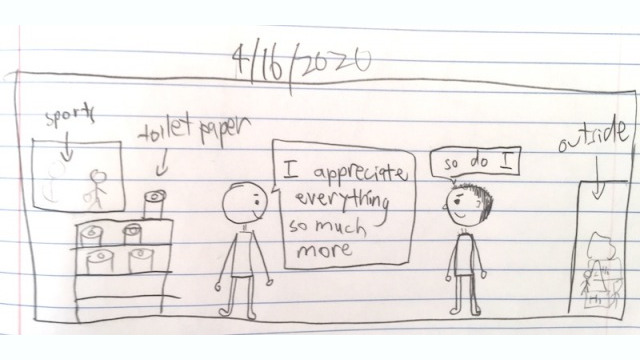 4/16/2020
sports
toilet paper
I appreciate
everything
so much
more
so do I
outside
Hi